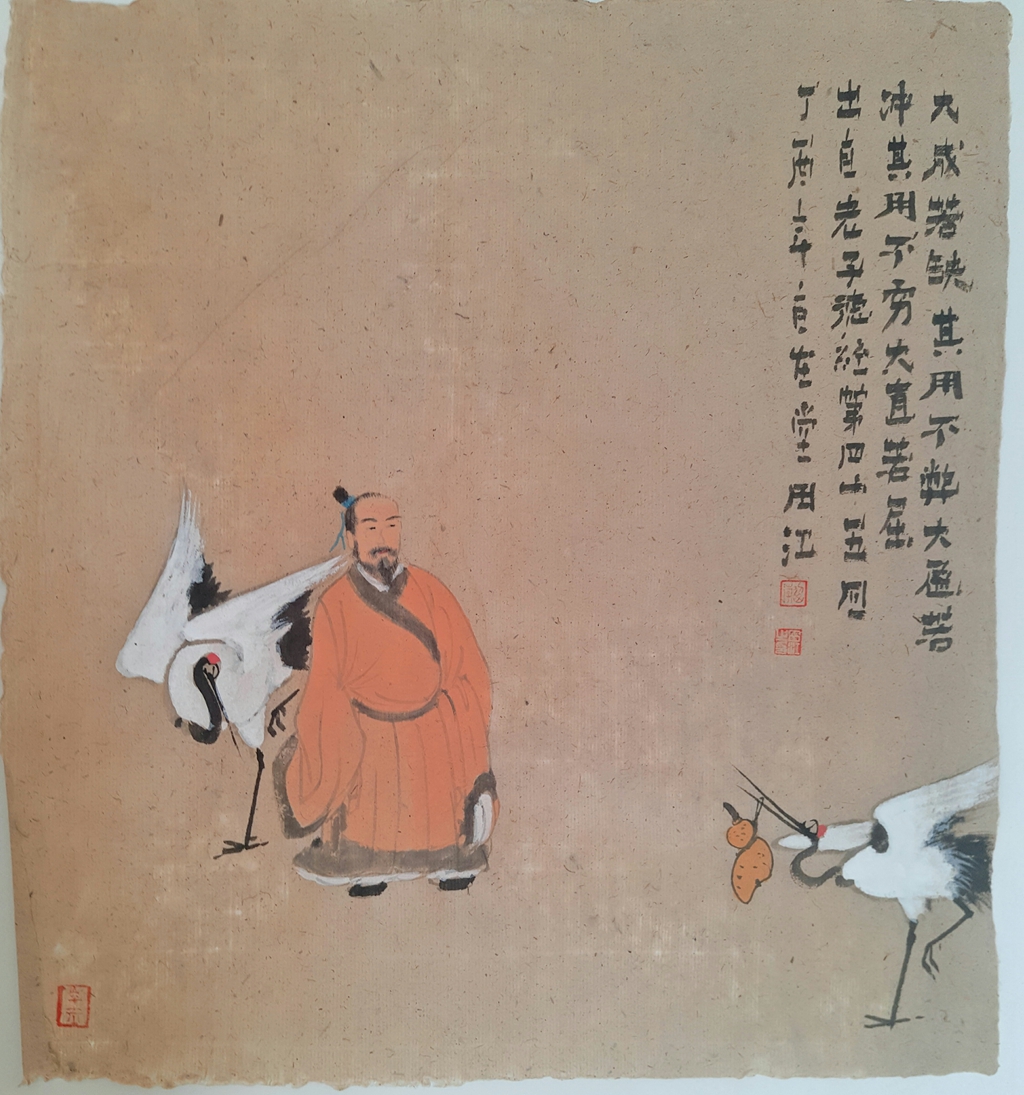 大成若缺其用不弊大盈若
冲其用不穷大直若屈
出自老子德经第四十五
丁酉年自在堂周江